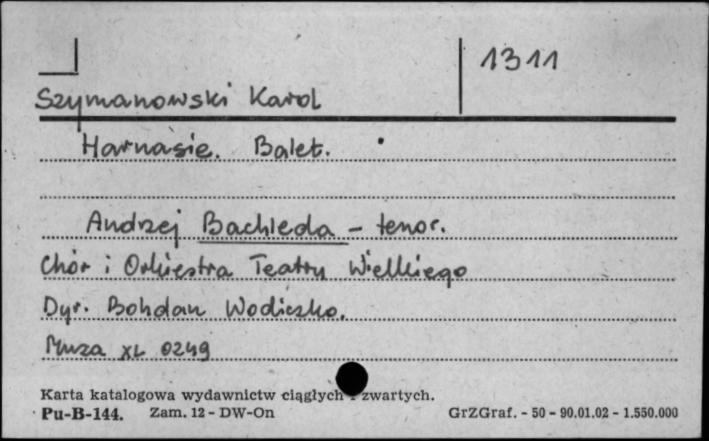 1311
Szymanowski Karol
Harnasie. Balet.
Andrzej Bachleda - tenor.
Chór i Orkiestra Teatru Wielkiego
Dyr. Bohdan Wodiczko.
Muza XL 0249
Karta katalogowa wydawnictw ciągłych i zwartych.
Pu-B-144. Zam. 12 - DW-On GrZGraf. - 50 - 90.01.02 - 1.550.000